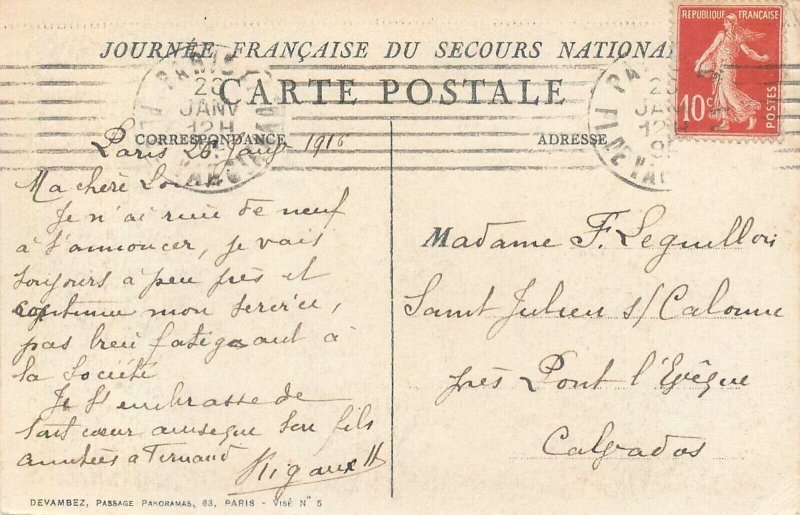 JOURNÉE FRANÇAISE DU SECOURS NATIONAL
CARTE POSTALE
CORRESPONDANCE
ADRESSE
RÉPUBLIQUE FRANÇAISE
10c
POSTES
PARIS
JANV
12H
Paris 26 Janv 1916
Ma chère
Je n'ai rien de neuf
à t'annoncer, je vais
toujours à peu près et
continue mon service,
pas bien fatiguant à
la Société
Je t'embrasse de
tout cœur ainsi que ton fils
amitiés à Fernand
Rigault
Madame F. Leguillon
Saint Julien s/ Calonne
près Pont l'Evêque
Calvados
DEVAMBEZ, PASSAGE PANORAMAS, 63, PARIS - VISÉ N° 5